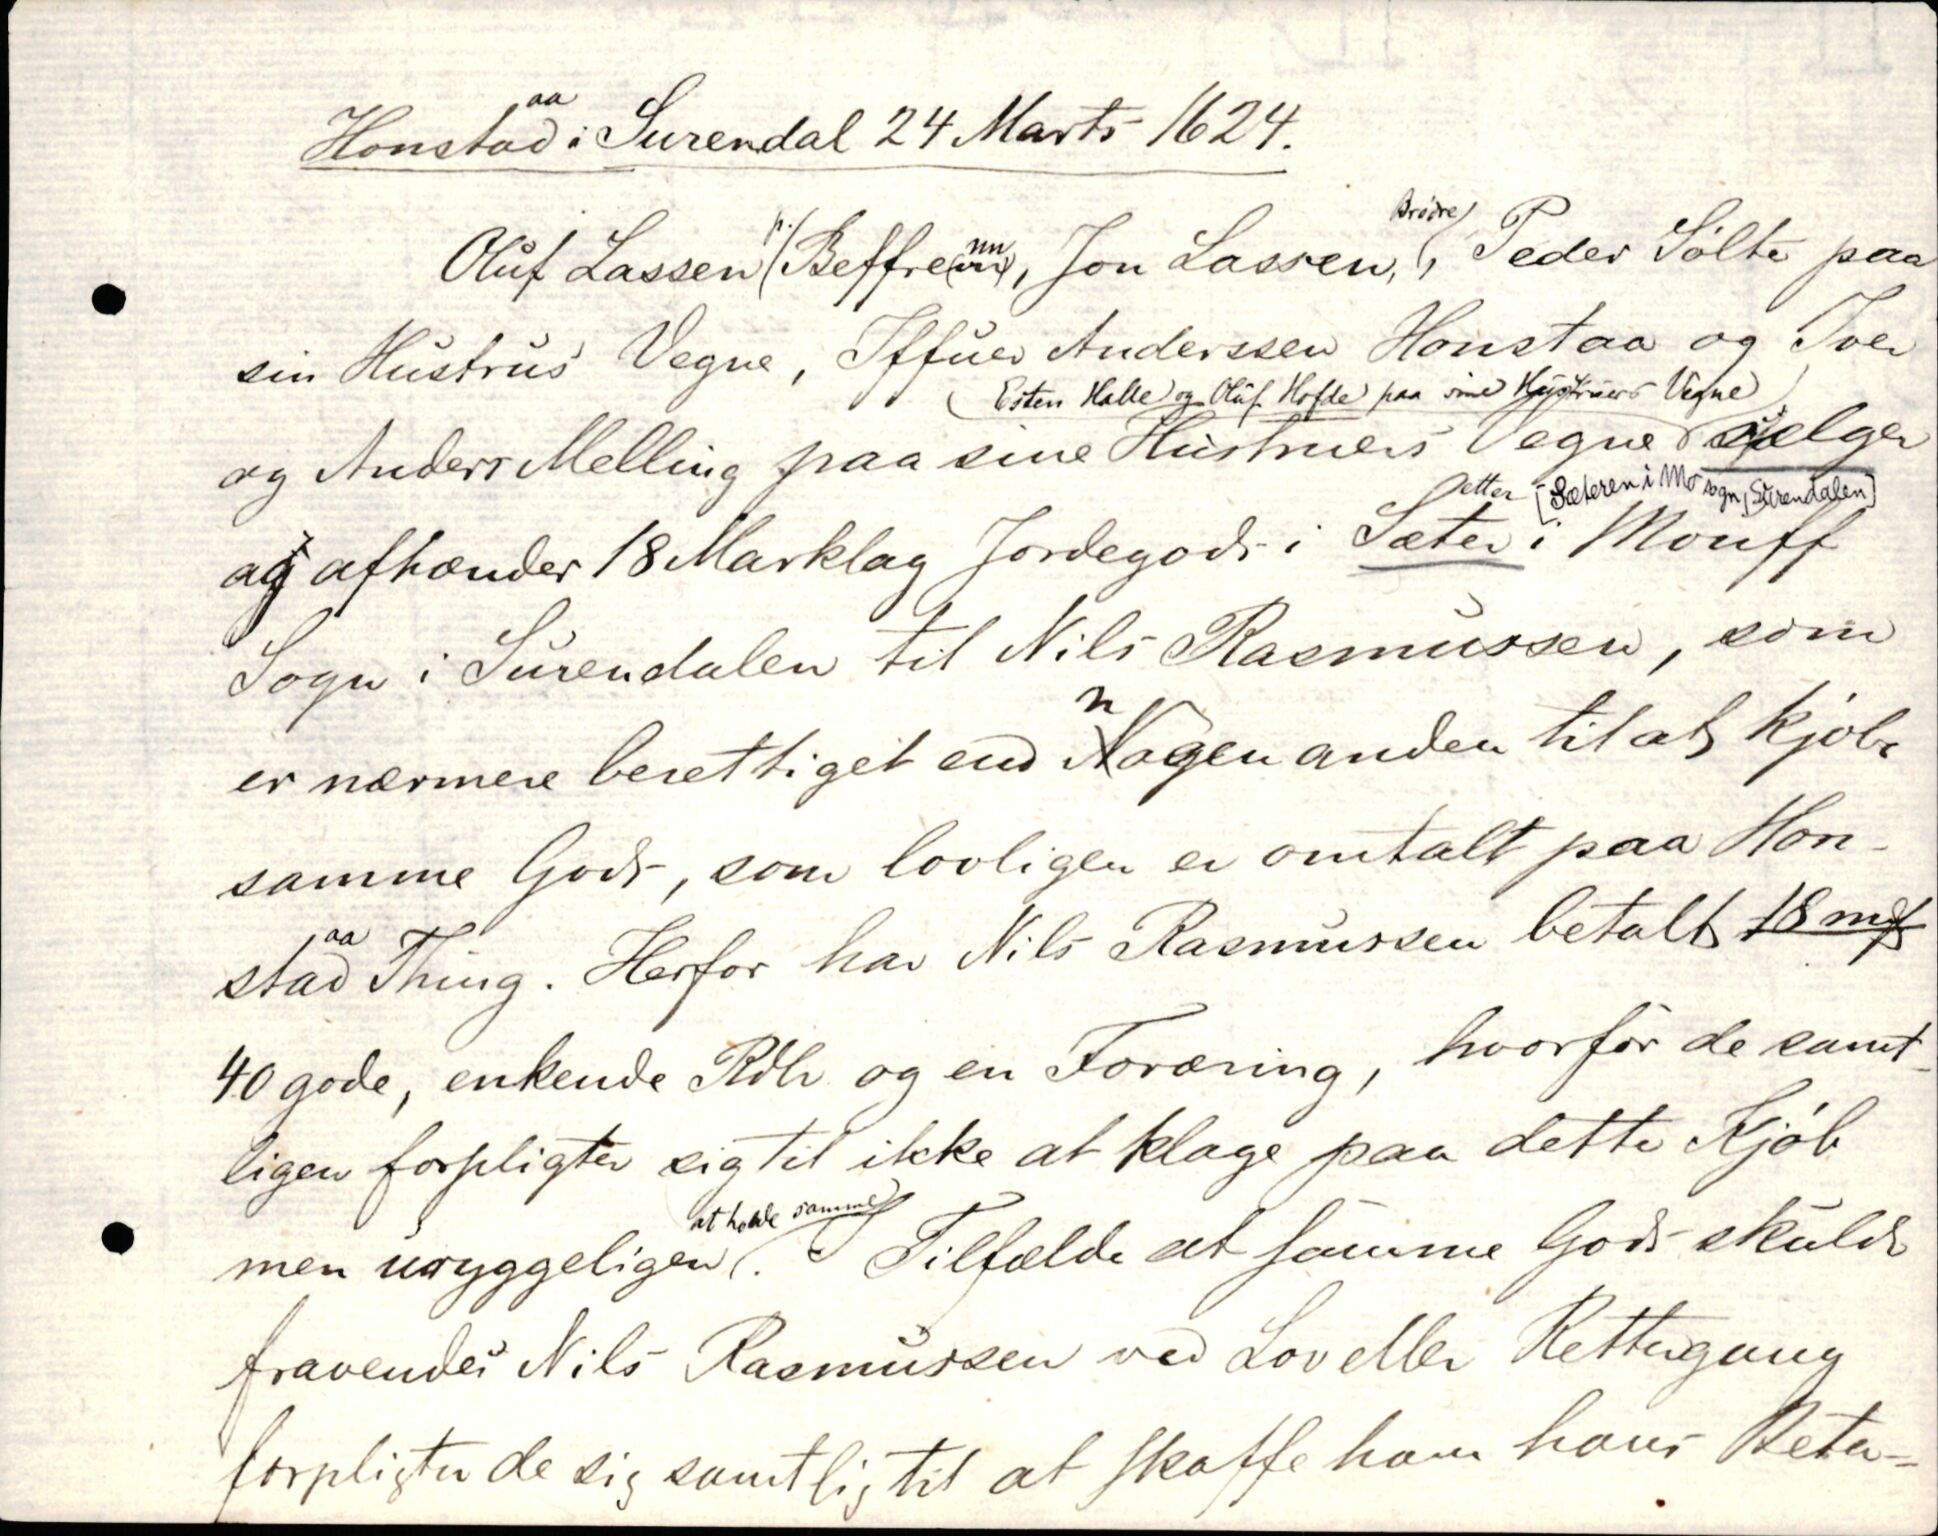 aa
Honstad i Surendal 24 Marts 1624.
p. nn Brødre
Oluf Lassen (Beffrem, Jon Lassen, Peder Sølte paa
sin Hustrus Vegne, Iffuer Anderssen Honstaa og Iver
(Esten Halle og Oluf Hofte paa sine Hustruers Vegne)
og Anders Melling paa sine Hustruers Vegne sælger
etter [Sæteren i Mo sogn, Surendalen]
og afhænder 18 Marklag Jordegods i Sæter i Mouff
Sogn i Surendalen til Nils Rasmussen, som
n
er nærmere berettiget end Nogen anden til at kjøbe
samme Gods, som lovligen er omtalt paa Hon-
aa
stad Thing. Herfor har Nils Rasmussen betalt 18 mk
40 gode, enkende Rdlr og en Foræring, hvorfor de samt-
ligen forpligter sig til ikke at klage paa dette Kjøb
at holde samme
men uryggeligen. I Tilfælde at samme Gods skulde
fravendes Nils Rasmussen ved Lov eller Rettergang
forpligter de sig samtlig til at skaffe ham hans Beta-